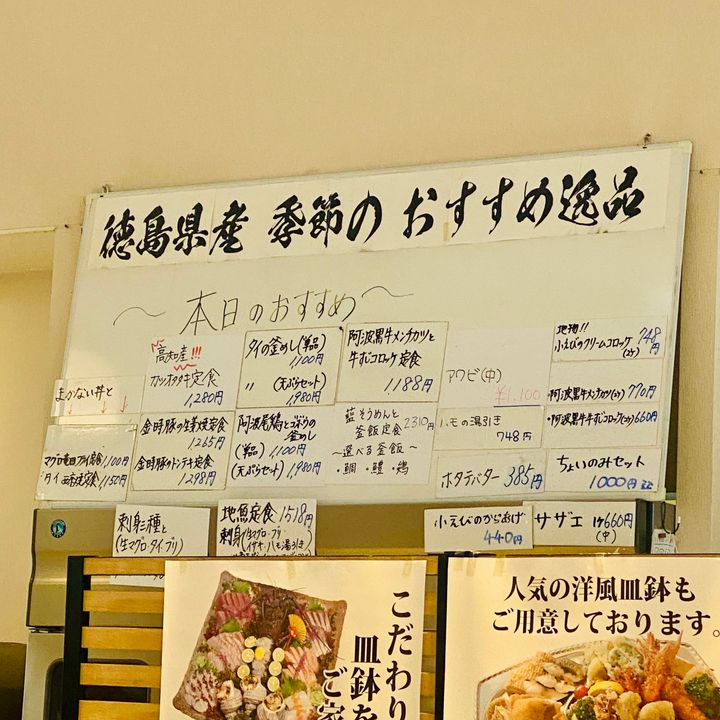 徳島県産 季節の おすすめ逸品
〜 本日のおすすめ 〜
まかない丼と
↓ ↓ ↓
マグロ竜田フライ定食 1,100円
タイ 西京焼定食 1,150円
高知産!!!
カツオタタキ定食
1,280円
金時豚の生姜焼定食
1265円
金時豚のトンテキ定食
1298円
タイの釜めし(単品)
1,100円
〃 (天ぷらセット)
1,980円
阿波尾鶏とゴボウの
釜めし
(単品) 1,100円
(天ぷらセット) 1,980円
阿波黒牛メンチカツと
牛すじコロッケ定食
1188円
藍そうめんと
釜飯定食 2310円
〜選べる釜飯〜
・鯛 ・鱧 ・鶏
アワビ(中)
¥1,100
ハモの湯引き
748円
ホタテバター 385円
地物!!
小えびのクリームコロッケ 748円
(2ケ)
・阿波黒牛メンチカツ(2ケ) 770円
・阿波黒牛牛すじコロッケ(2ケ) 660円
ちょいのみセット
1000円
刺身三種と
(生マグロ・タイ・ブリ)
地魚定食 1518円
刺身(生マグロ・ブリ
イサキ・ハモ湯引き
小えびのからあげ
440円
サザエ 1ケ660円
(中)
こだわり
皿鉢を
ご家
人気の洋風皿鉢も
ご用意しております。